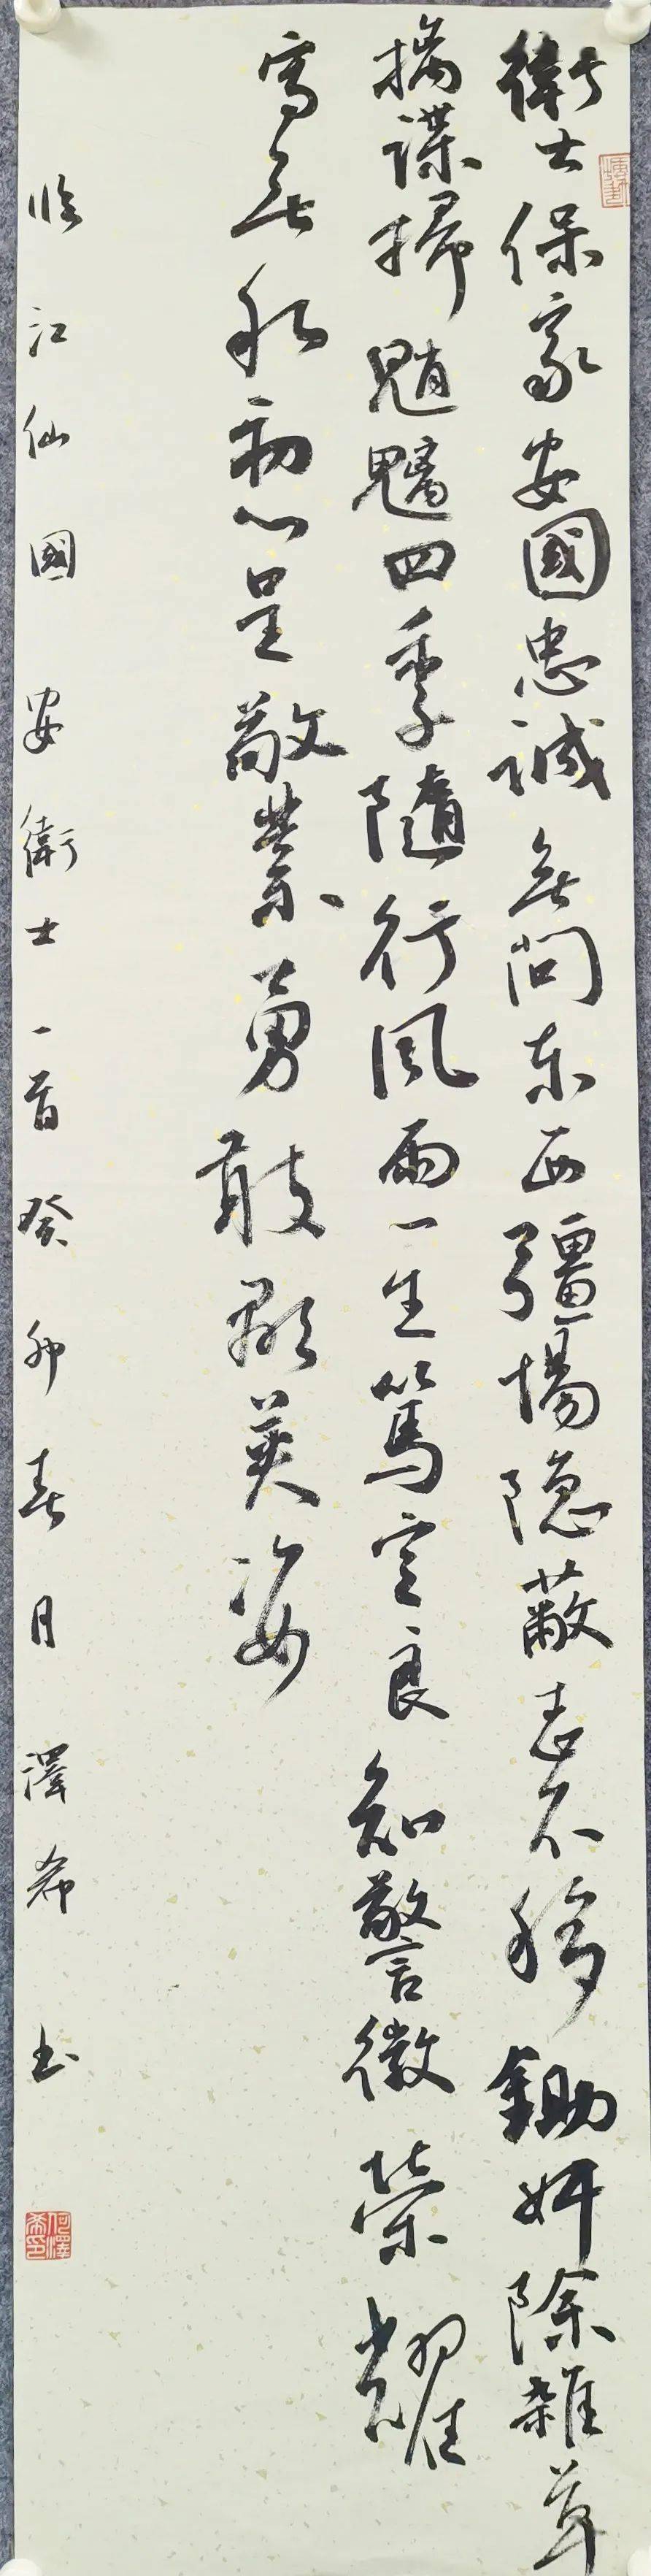 衛士保家安國忠誠無問東西疆場隐蔽志不移鋤奸除雜草
擒諜掃魈魑四季隨行風雨一生篤定良知警徽榮耀
寫無私初心呈敬業勇敢顯英姿
临江仙國安衛士一首癸卯春月澤希书
何澤希印